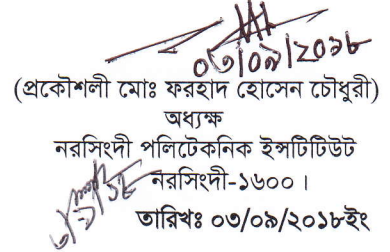 ০৩/০৯/২০১৮
(প্রকৌশলী মোঃ ফরহাদ হোসেন চৌধুরী)
অধ্যক্ষ
নরসিংদী পলিটেকনিক ইন্সটিটিউট
নরসিংদী-১৬০০।
তারিখঃ ০৩/০৯/২০১৮ইং